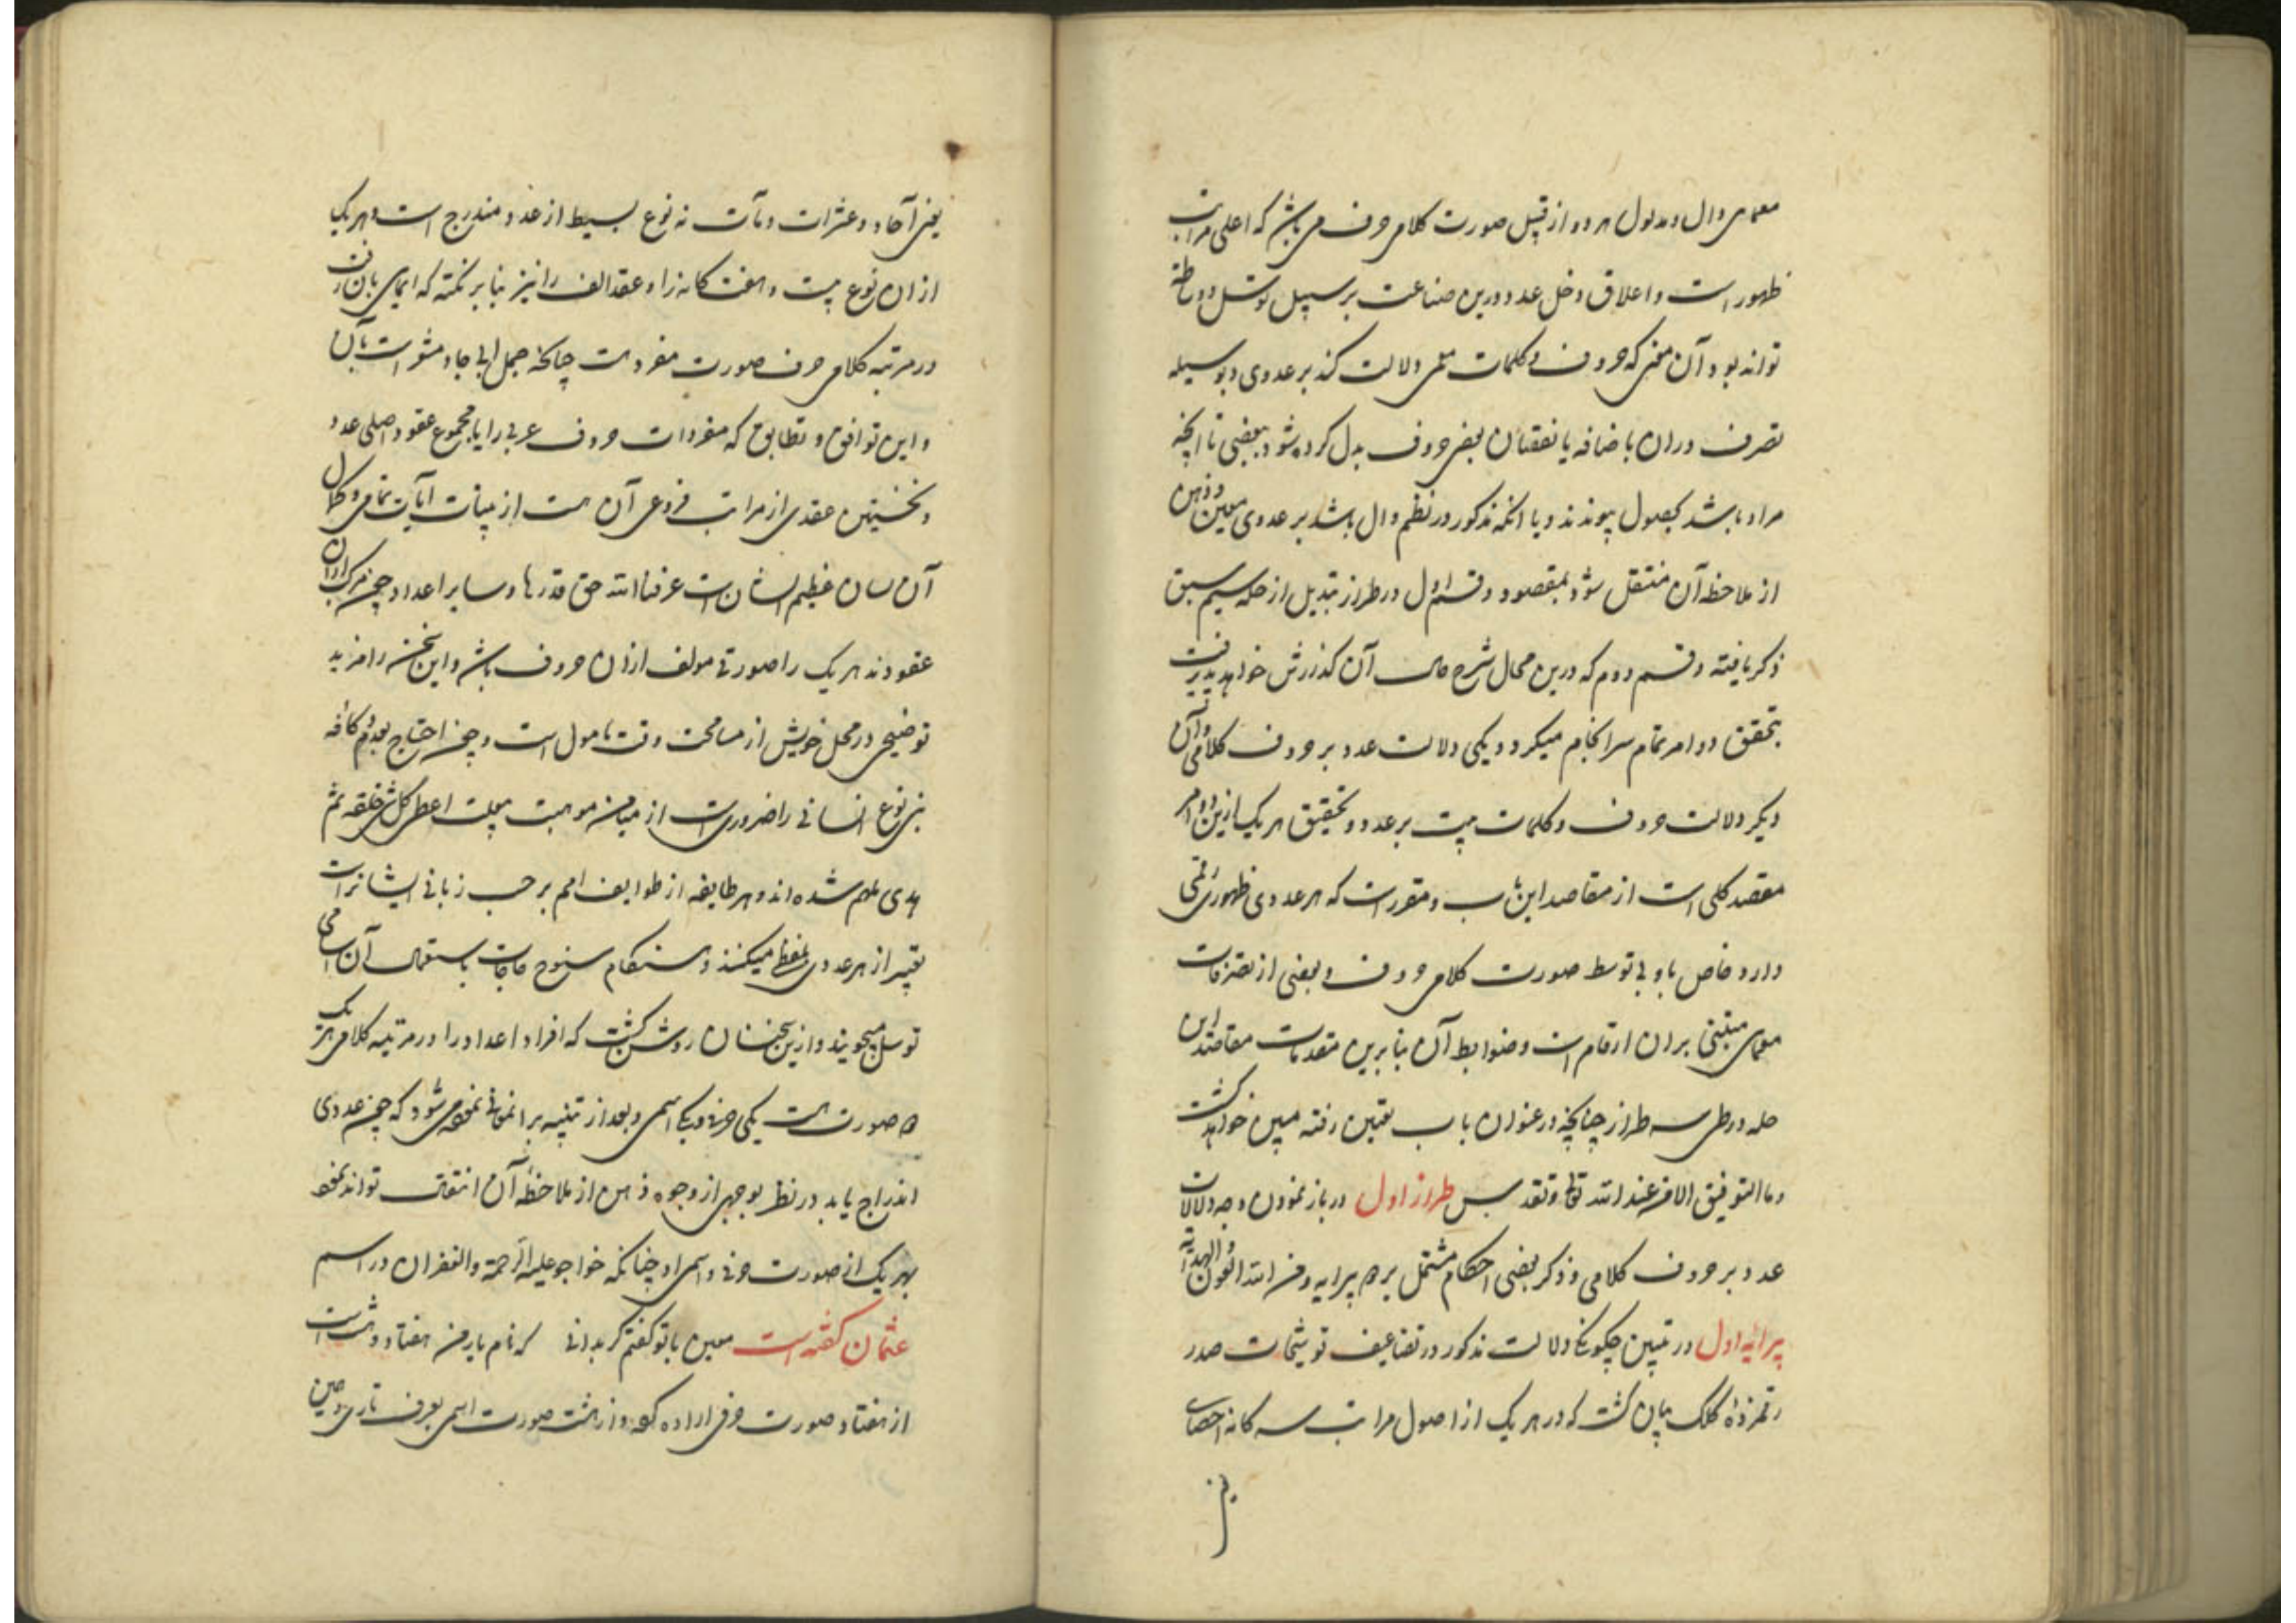 معمای دال و مدلول هر دو از قبیل صورت کلامی حرف می باشد که اعلی مراتب
ظهور است و اعلاق دخل عدد درین صناعت بر سبیل توسل و وساطه
تواند بود و آن معنی که حروف و کلمات معمی دلالت کند بر عددی و بوسیله
تصرف در ان باضافه یا نقصان بعضی حروف بدل کرده شود ببعضی تا آنچه
مراد باشد بحصول پیوندد و یا آنکه مذکور در نظم دال باشد بر عددی معین و ذهن
از ملاحظه آن منتقل شود بمقصود و قسم اول در طراز تبدیل از حله سیم سبق
ذکر یافته و قسم دوم که درین محل شرح حال آن گذارش خواهد پذیرفت
بتحقق دو امر تمام سرانجام میگردد یکی دلالت عدد بر حروف کلامی و آن
دیگر دلالت حروف و کلمات بیت بر عدد و تحقیق هر یک ازین دو امر
مقصد کلی است از مقاصد این باب و مقررست که هر عددی ظهوری رقمی
دارد خاص باو بی توسط صورت کلامی حروف و بعضی از تصرفات
معمای مبتنی بران ارقام است و ضوابط آن بنابرین مقدمات مقاصد این
حله در طی سه طراز چنانچه در عنوان باب تعیین رفته مبین خواهد گشت
و ما التوفیق الا من عند الله تعالی و تقدس طراز اول در باز نمودن وجه دلالات
عدد بر حروف کلامی و ذکر بعضی احکام مشتمل بر ۵ پیرایه و من الله العون و الهدایه
پیرایه اول در تبیین چگونگی دلالت مذکور در تضاعیف توشیحات صدر
رقمزدهٔ کلک بیان گشت که در هر یک از اصول مراتب سه گانه احصای
یعنی
یعنی آحاد و عشرات و مآت نه نوع بسیط از عدد مندرج است و هر یک
از ان نوع بیست و هفت گانه را و عقد الف را نیز بنابر نکته که ایمای بان رفت
در مرتبه کلامی حرف صورت مفردست چنانکه جمل ابی جاد مشعر است بآن
و این توافق و تطابق که مفردات حروف عربی را با مجموع عقود اصلی عدد
و نخستین عقدی از مراتب فروعی آن هست از بینات آیات تمامی و کمال
آن لسان عظیم الشان است عرفنا الله حق قدرها و سایر اعداد چون مرکب از ان
عقودند هر یک را صورتی مولف از ان حروف باشد و این سخن را مزید
توضیحی در محل خویش از مسامحت وقت مامول است و چون احتیاج بعد و کافه
بنی نوع انسانی را ضروریست از میامن موهبت اعطی کل شی خلقه ثم
هدی ملهم شده اند و هر طایفه از طوایف امم بر حسب زبانی ایشانراست
تعبیر از هر عددی بلفظی میکنند و هنگام سنوح حاجات باستعمال آن اسامی
توسل میجویند و ازین سخنان روشن گشت که افراد اعداد را در مرتبه کلامی هر یک
۵ صورت هست یکی حرفی و یکی اسمی و بعد از تنبیه بر ان مخفی نمی شود که چون عددی
اندراج یابد در نظم بوجهی از وجوه ذهن از ملاحظه آن انتقال تواند نمود
بهر یک از صورت حرفی و اسمی او چنانکه خواجو علیه الرحمة و الغفران در اسم
عثمان گفته است معین با تو گفتم گر بدانی که نام یار من هفتاد و هشت است
از هفتاد صورت حرفی اراده کرده و از هشت صورت اسمی بعرف تازی و عین